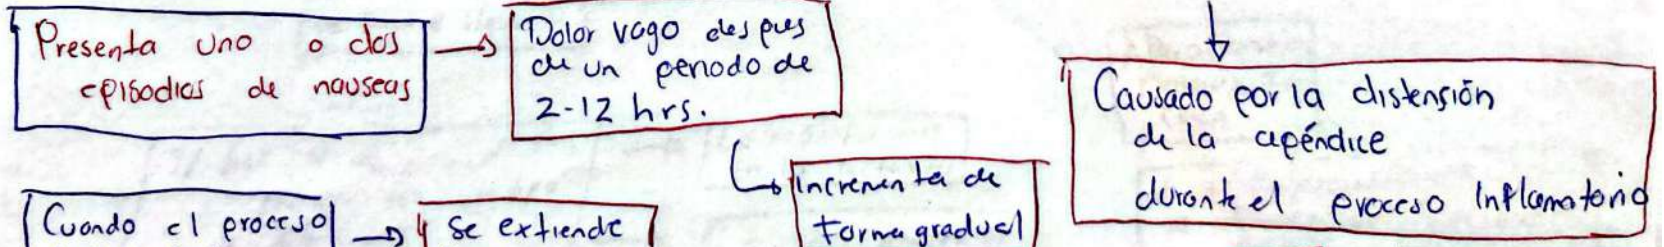 Presenta uno o dos
episodios de nauseas
Dolor vago des pues
de un periodo de
2-12 hrs.
Incrementa de
forma gradual
Causado por la distensión
de la apéndice
durante el proceso Inflamatorio
Cuando el proceso
se extiende